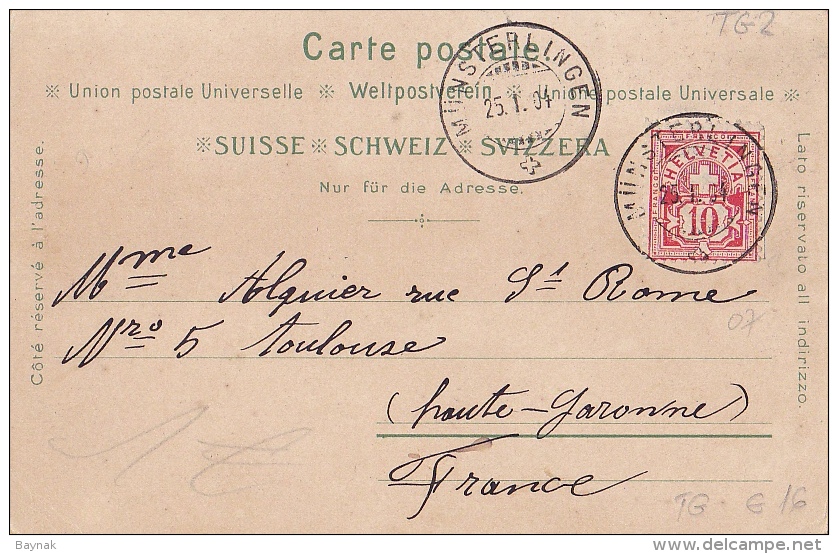 TG-2
Carte postale.
※ Union postale Universelle ※ Weltpostverein ※ Unione postale Universale ※
※ SUISSE ※ SCHWEIZ ※ SVIZZERA
Nur für die Adresse.
MÜNSTERLINGEN
25.1.04
MÜNSTERLINGEN
25.1.04
FRANCO
HELVETIA
FRANCO
10
Côté réservé à l'adresse.
Lato riservato all indirizzo.
Mme Alquier rue St Rome
Nro 5 Toulouse
07
(haute-Garonne)
France
TG G 16
Baynak
delcampe.net